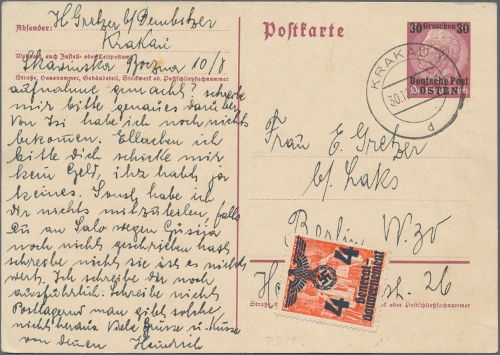 Absender: H Gretzer b/Dembitzer
Krakau
Wohnort, auch Zustell- oder Leitpostamt
Skawinska Boczna 10/8
Straße, Hausnummer, Gebäudeteil, Stockwerk od. Postschließfachnummer
aufnahme gemacht? schreibe
mir bitte genaues darüber
Von Isi habe ich noch nichts
bekommen. Ellerchen ich
bitte dich schicke mir
kein Geld, ihr habt ja
keines. Sonst habe ich
Dir nichts mitzuteilen, falls
du an Salo wegen
noch nicht geschrieben hast
schreibe nicht sie ist es nicht
wert. Ich schreibe dir noch
ausführlich. Schreibe nicht
Postlagernd man gibt solche
nicht heraus Viele Grüsse u. Küsse
von deinem Heinrich
Postkarte
30 Groschen 30
Deutsche Post
OSTEN
KRAKAU 1
30.1
d
Frau E. Gretzer
b/ Laks
Berlin W.30
st. 26
Straße, od. Postschließfachnummer
4 4
General-
Gouvernement